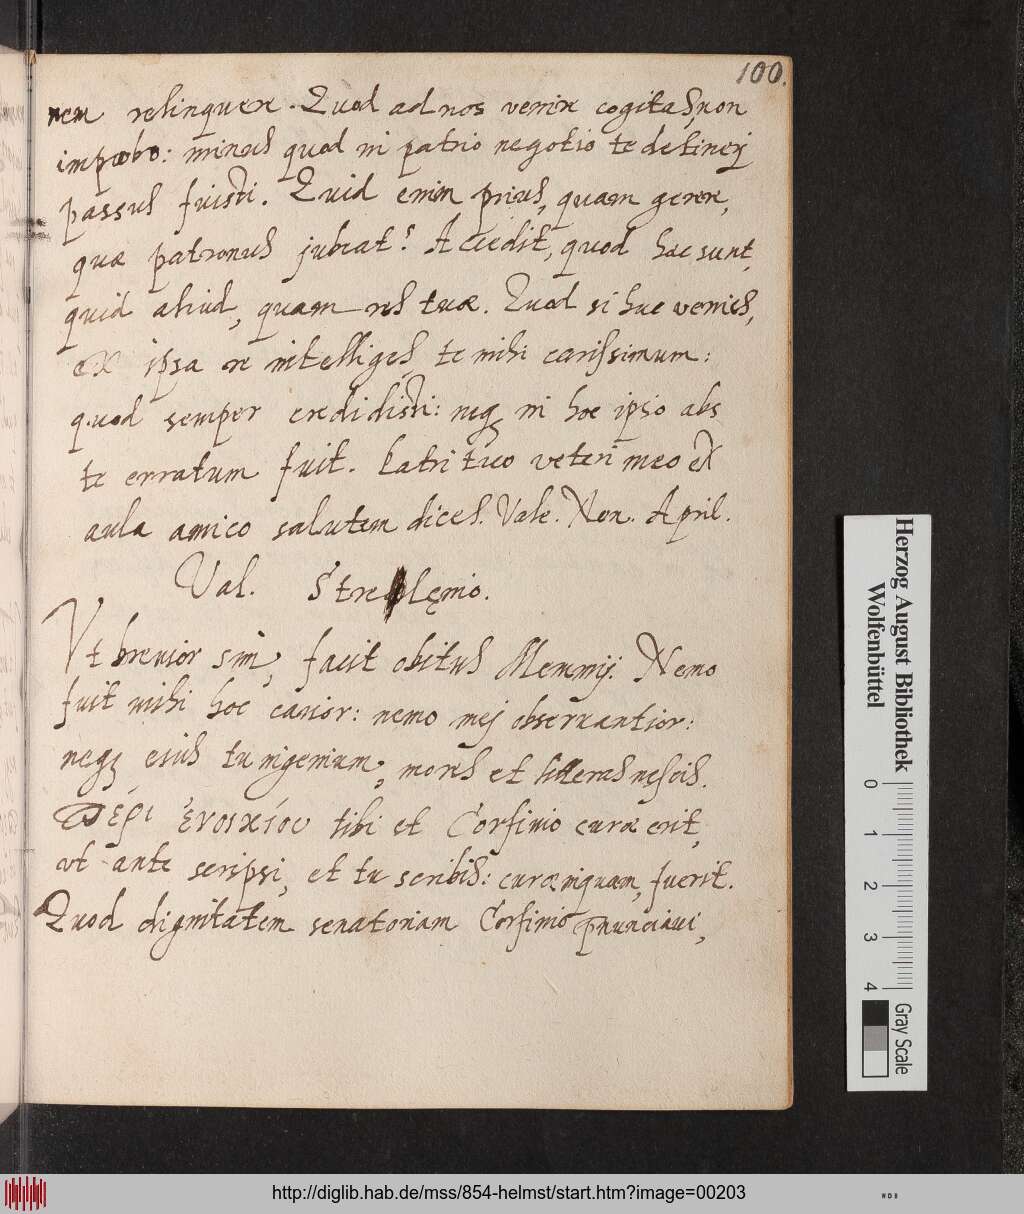 100.
nem relinquere. Quod ad nos venire cogitas, non
improbo: minus quod in patrio negotio te detinerj
passus fuisti. Quid enim prius, quam gerere,
quæ patronus jubeat? Accedit, quod hæc sunt,
quid aliud, quam res tuæ. Quod si huc venies,
ex ipsa re intelliges, te mihi carissimum:
quod semper credidisti: neqꝫ in hoc ipso abs
te erratum fuit. Patri tuo veteri meo ex
aula amico salutem dices. Vale. Non. April.
Val. lęmio.
Vt breuior sim, facit obitus Memmij. Nemo
fuit mihi hoc carior: nemo mej obseruantior:
neqꝫ eius tu ingenium, mores et litteras nescis.
Περι ἐνοικίου tibi et Corfinio curæ erit,
vt ante scripsi, et tu scribis: curæ inquam, fuerit.
Quod dignitatem senatoriam Corfinio pnunciaui,
Herzog August Bibliothek
Wolfenbüttel
0 1 2 3 4
Gray Scale
http://diglib.hab.de/mss/854-helmst/start.htm?image=00203